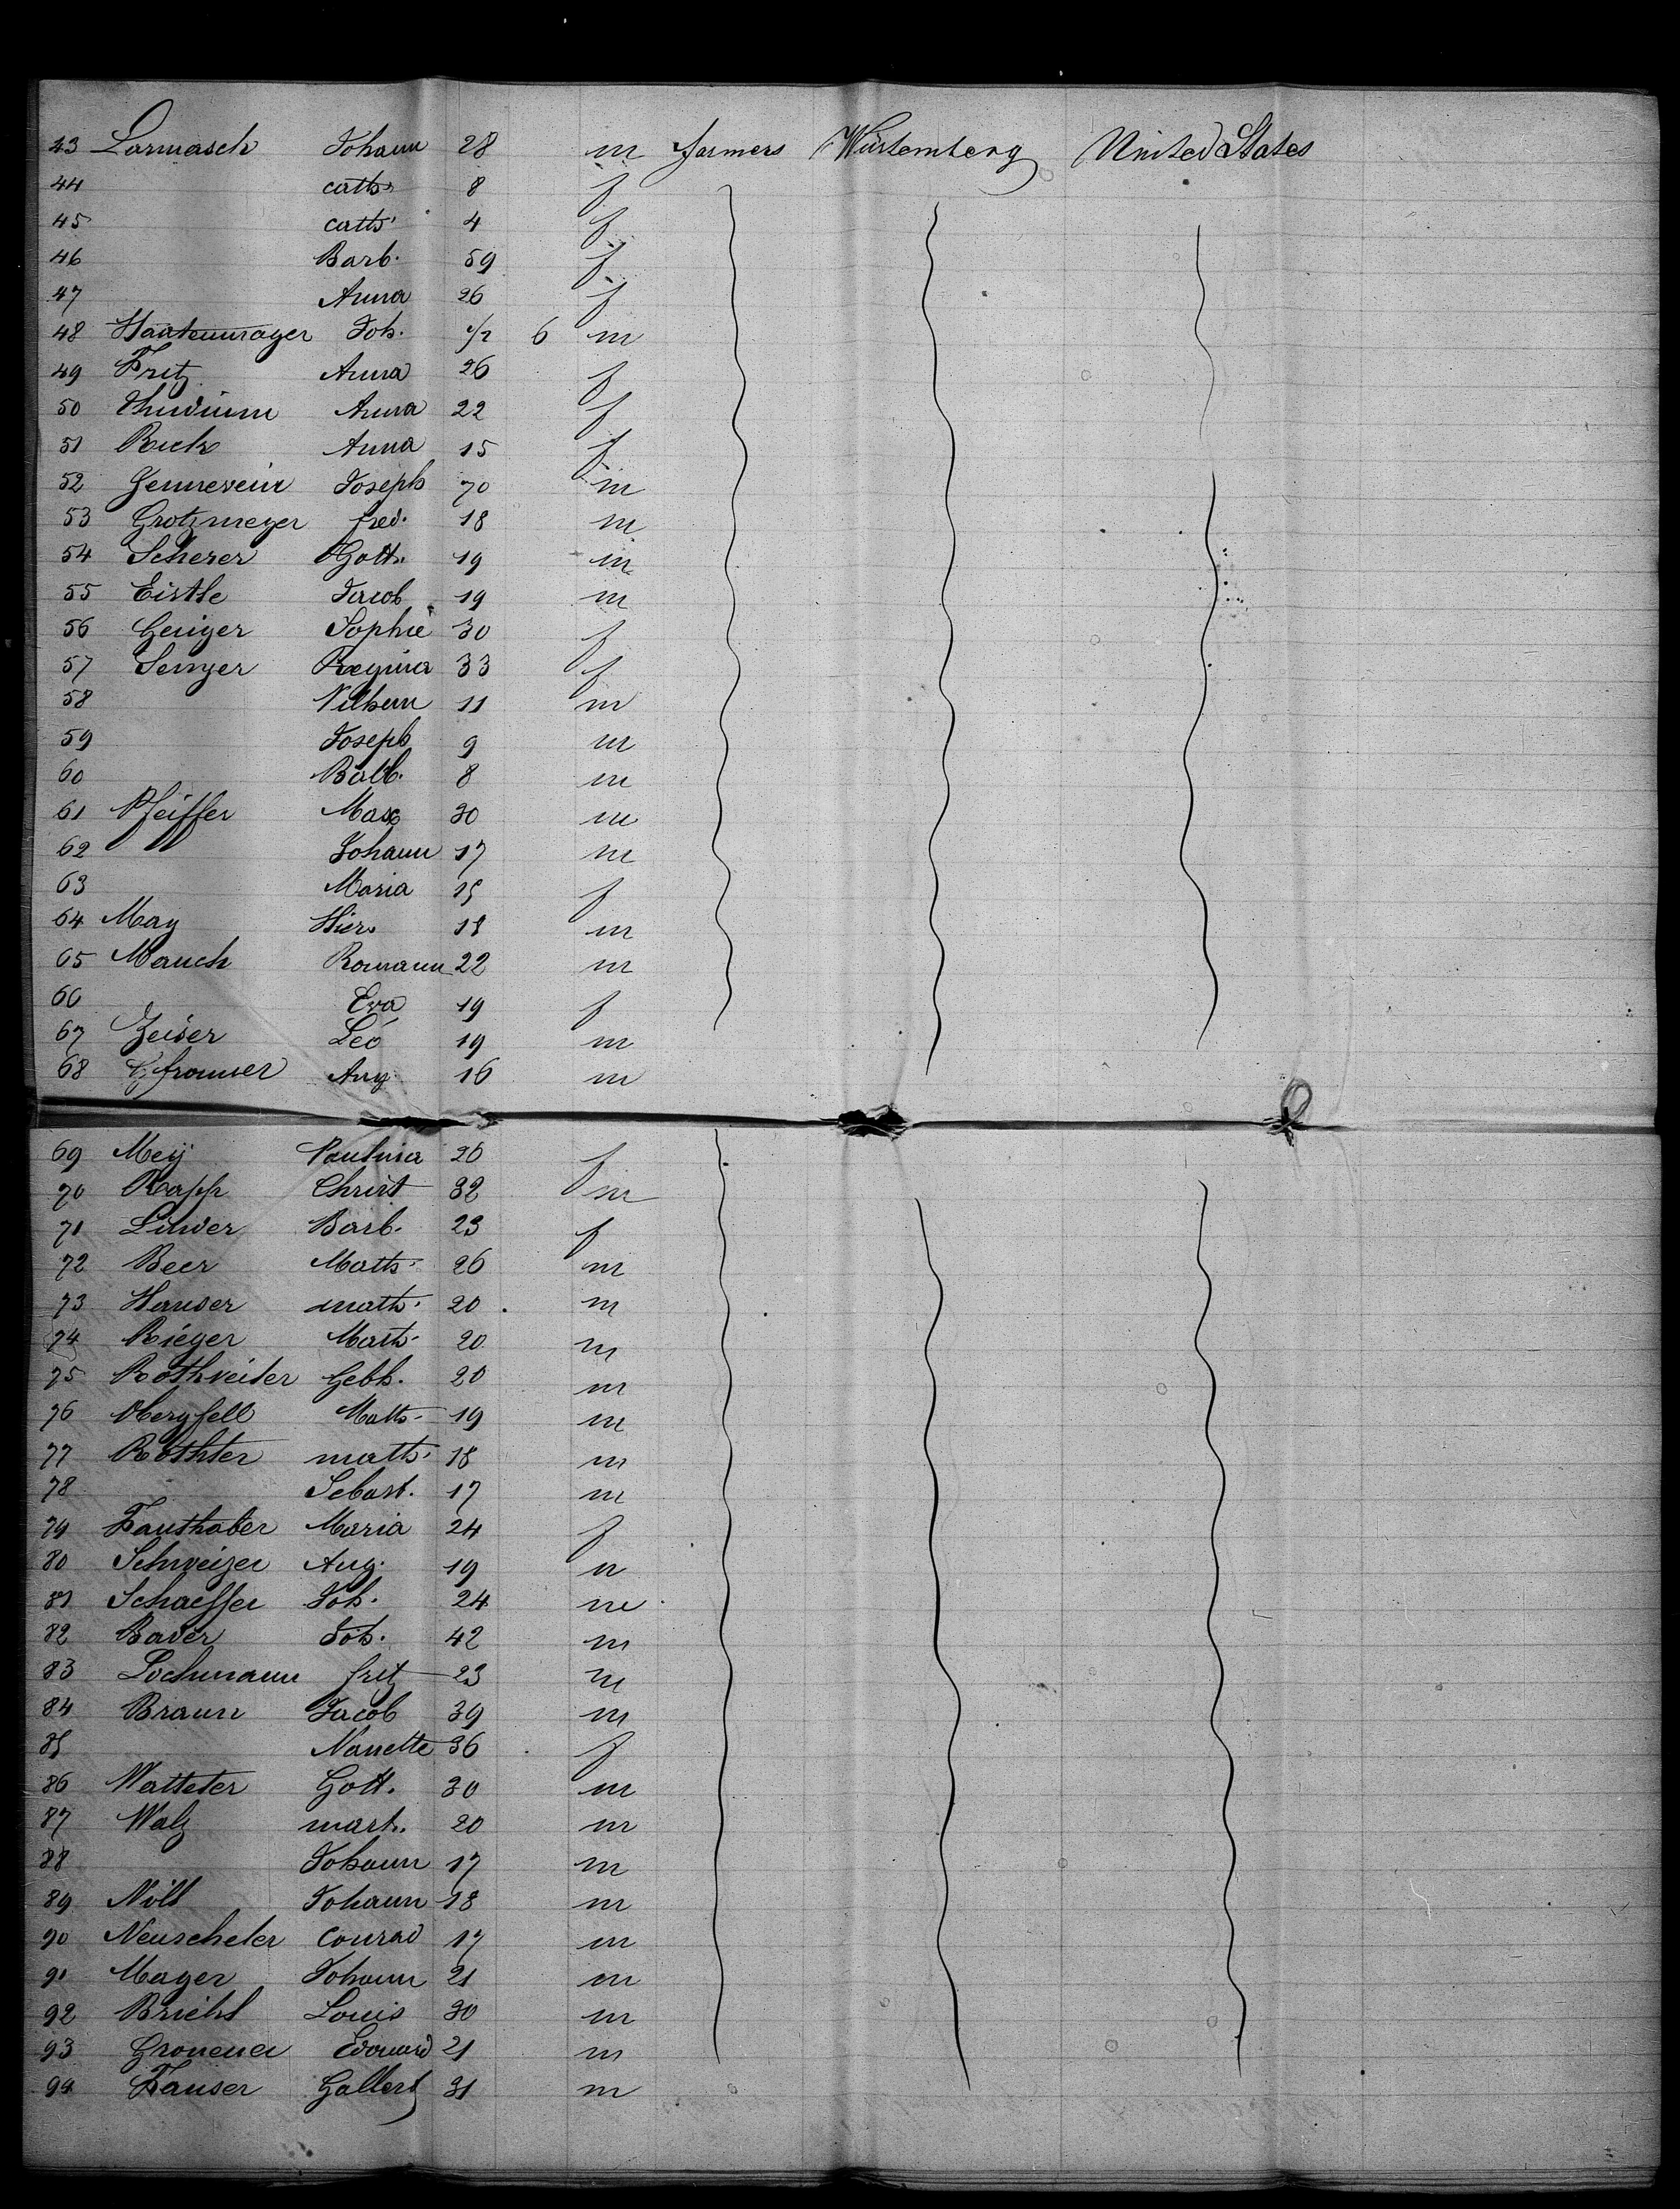 43 Larmasch Johann 28 m farmers Würtemberg United States
44 cath. 8 f
45 cath. 4 f
46 Barb. 59 f
47 Anna 26 f
48 Joh. 1/2 6 m
49 Fritz Anna 26 f
50 Thudium Anna 22 f
51 Ruck Anna 15 f
52 Gennewein Joseph 70 m
53 Grotzmeyer fred. 18 m
54 Scherer Gott. 19 m
55 Eistle Jacob 19 m
56 Geiger Sophie 30 f
57 Senger Regina 33 f
58 Vilhem 11 m
59 Joseph 9 m
60 Balb. 8 m
61 Pfeiffer Max 30 m
62 Johann 17 m
63 Maria 15 f
64 May Hier. 18 m
65 Mauch Romann 22 m
66 Eva 19 f
67 Zeiser Leo 19 m
68 Gfromer Aug. 16 m
69 Mey Paulina 20 f
70 Rapp Christ 32 m
71 Linder Barb. 23 f
72 Beer Math. 26 m
73 Hauser math. 20 m
74 Rieger Math. 20 m
75 Rothweiler Gebh. 20 m
76 Obergfell Math. 19 m
77 Rothler math. 18 m
78 Sebast. 17 m
79 Fauthaber Maria 24 f
80 Schweizer Aug. 19 m
81 Schaeffer Joh. 24 m
82 Bader Joh. 42 m
83 Lochmann fritz 23 m
84 Braun Jacob 39 m
85 Nanette 36 f
86 Watteter Gott. 30 m
87 Walz mart. 20 m
88 Johann 17 m
89 Nill Johann 18 m
90 Neuscheler Conrad 17 m
91 Mayer Johann 21 m
92 Briehl Louis 30 m
93 Gronener Edouard 21 m
94 Fauser Gallert 31 m